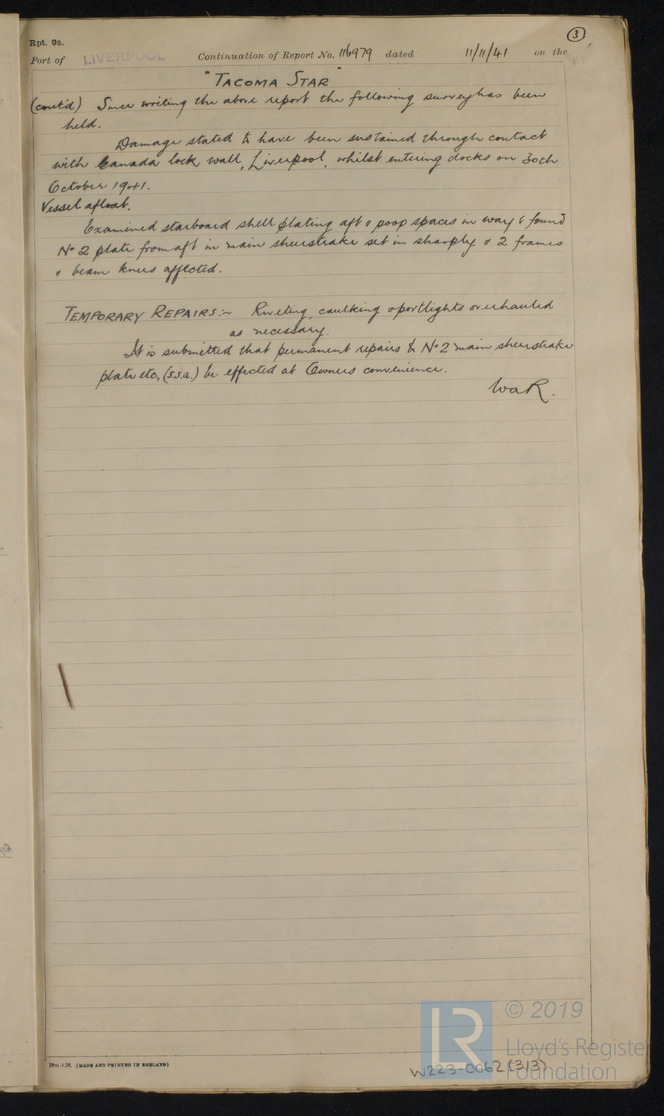 Rpt. 9a.
③
Port of LIVERPOOL Continuation of Report No. 116979 dated 11/11/41 on the
"TACOMA STAR"
(contd) Since writing the above report the following survey has been
held.
Damage stated to have been sustained through contact
with Canada lock wall, Liverpool, whilst entering docks on 30th
October 1941.
Vessel afloat.
Examined starboard shell plating aft & poop spaces in way & found
No 2 plate from aft in main sheerstrake set in sharply & 2 frames
& beam knees affected.
TEMPORARY REPAIRS:~ Riveting, caulking & portlights overhauled
as necessary.
It is submitted that permanent repairs to No 2 main sheerstrake
plate etc, (s.s.a.) be effected at Owners convenience.
WaR.
(MADE AND PRINTED IN ENGLAND)
W223-0062 (3/3)
LR © 2019
Lloyd's Register
Foundation